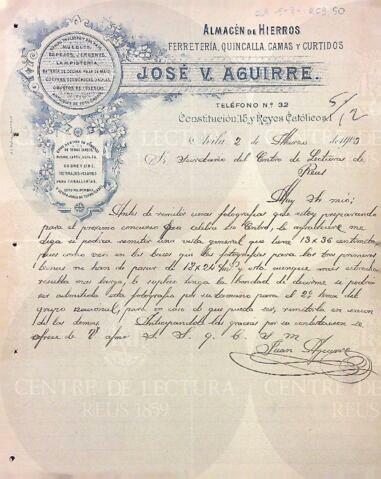 ALMACÉN DE HIERROS
FERRETERÍA, QUINCALLA, CAMAS Y CURTIDOS
JOSÉ V. AGUIRRE.
TELÉFONO N.º 32
5/2
Constitución, 15 y Reyes Católicos 1
MUEBLES,
LAMPISTERÍA
Avila 2 de Marzo de
S. Secretario del Centro de Lectura de
Reus
Muy Sr mio:
Antes de remitir unas fotografias que estoy preparando
para el proximo concurso que celebra ese Centro, le agradeceré me
diga si podria remitir una vista general que tiene 13 x 36 centimetros
pues como veo en las bases que las fotografias para los tres primeros
temas no han de pasar de 18 x 24 y esta aunque mas estrecha
resulta mas larga, le suplico tenga la bondad de decirme si podria
ser admitida esta fotografia por su tamaño para el 2º tema del
grupo nacional, para en caso de que pueda ser, remitirla en union
de las demas. Anticipandole las gracias por su contestacion se
ofrece de V. afmo S. S. q. b. s. m.
Juan Aguirre
CENTRE DE LECTURA
REUS 1859
CENTRE DE LECTURA
REUS 1859